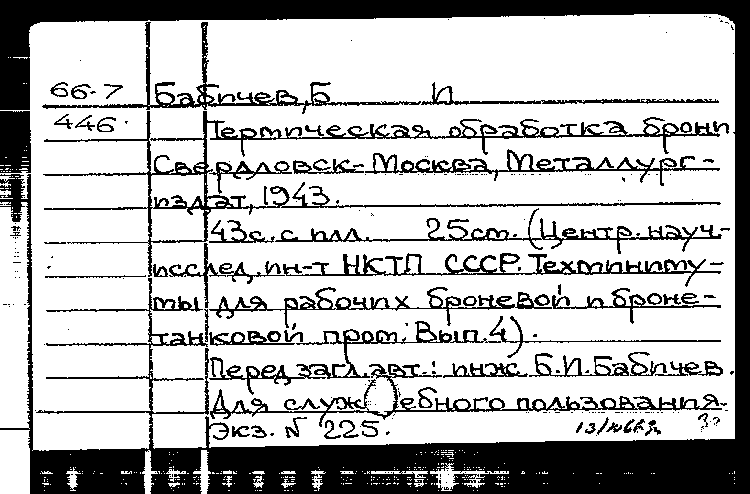 66.7 Бабичев, Б И
446. Термическая обработка брони
Свердловск-Москва, Металлург-
издат, 1943.
43с. с илл. 25см. (Центр. науч-
исслед. ин-т НКТП СССР. Техминиму-
мы для рабочих броневой и броне-
танковой пром; Вып. 4).
Перед загл. авт.: инж. Б.И. Бабичев.
Для служебного пользования.
Экз. № 225.